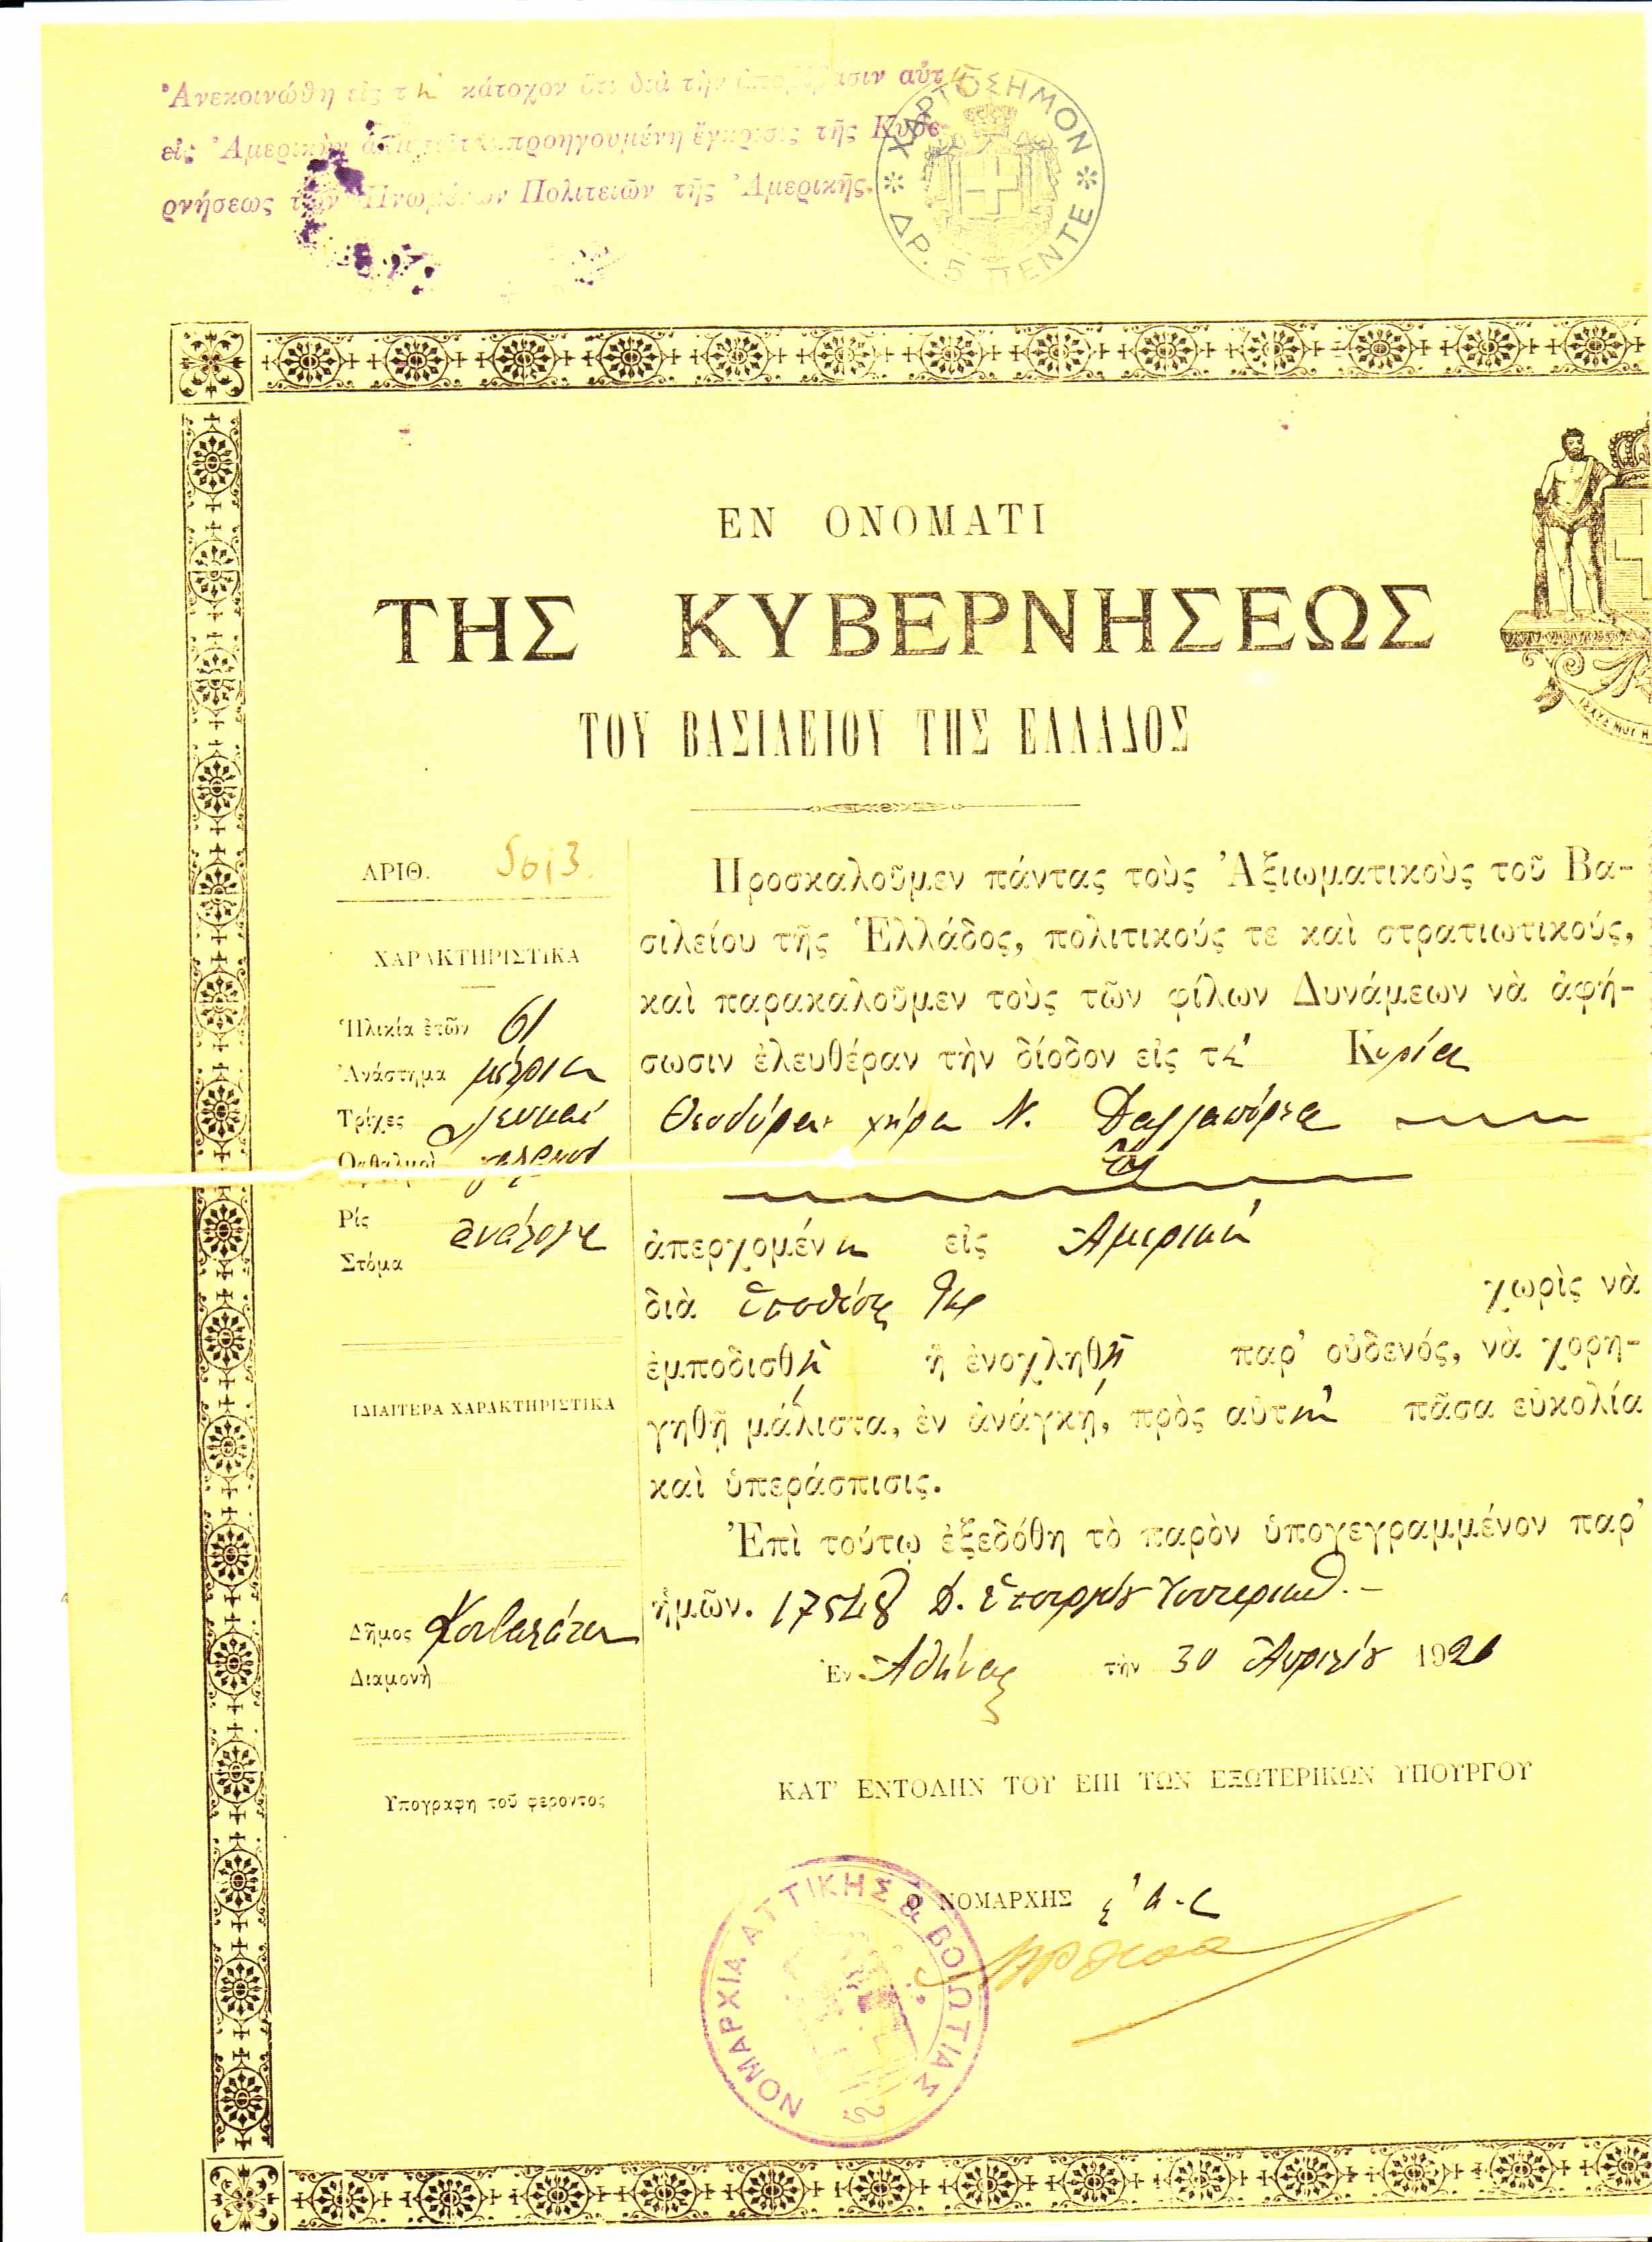 Ἀνεκοινώθη εἰς τὴ κάτοχον ὅτι διὰ τὴν ἀποβίβασιν αὐτῆς
εἰς Ἀμερικὴν ἀπαιτεῖται προηγουμένη ἔγκρισις τῆς Κυβε-
ρνήσεως τῶν Ἡνωμένων Πολιτειῶν τῆς Ἀμερικῆς.
ΧΑΡΤΟΣΗΜΟΝ
ΔΡ. 5 ΠΕΝΤΕ
ΕΝ ΟΝΟΜΑΤΙ
ΤΗΣ ΚΥΒΕΡΝΗΣΕΩΣ
ΤΟΥ ΒΑΣΙΛΕΙΟΥ ΤΗΣ ΕΛΛΑΔΟΣ
ΙΣΧΥΣ ΜΟΥ Η
ΑΡΙΘ. 5013.
ΧΑΡΑΚΤΗΡΙΣΤΙΚΑ
Ἡλικία ἐτῶν 61
Ἀνάστημα μέτριον
Τρίχες λευκαί
Ὀφθαλμοὶ
Ρίς ἀνάλογα
Στόμα
ΙΔΙΑΙΤΕΡΑ ΧΑΡΑΚΤΗΡΙΣΤΙΚΑ
Δῆμος
Διαμονὴ
Ὑπογραφη τοῦ φεροντος
Προσκαλοῦμεν πάντας τοὺς Ἀξιωματικοὺς τοῦ Βα-
σιλείου τῆς Ἑλλάδος, πολιτικούς τε καὶ στρατιωτικούς,
καὶ παρακαλοῦμεν τοὺς τῶν φίλων Δυνάμεων νὰ ἀφή-
σωσιν ἐλευθέραν τὴν δίοδον εἰς τὴ Κυρία
Θεοδώρα χήρα Ν.
ἀπερχομένη εἰς Ἀμερικὴ
διὰ χωρὶς νὰ
ἐμποδισθῇ ἢ ἐνοχληθῇ παρ' οὐδενός, νὰ χορη-
γηθῇ μάλιστα, ἐν ἀνάγκῃ, πρὸς αὐτὴν πᾶσα εὐκολία
καὶ ὑπεράσπισις.
Ἐπὶ τούτῳ ἐξεδόθη τὸ παρὸν ὑπογεγραμμένον παρ'
ἡμῶν. 17548
Ἐν Ἀθήναις τὴν 30 Ἀπριλίου 1920
ΚΑΤ' ΕΝΤΟΛΗΝ ΤΟΥ ΕΠΙ ΤΩΝ ΕΞΩΤΕΡΙΚΩΝ ΥΠΟΥΡΓΟΥ
Ο ΝΟΜΑΡΧΗΣ
ΝΟΜΑΡΧΙΑ ΑΤΤΙΚΗΣ & ΒΟΙΩΤΙΑΣ